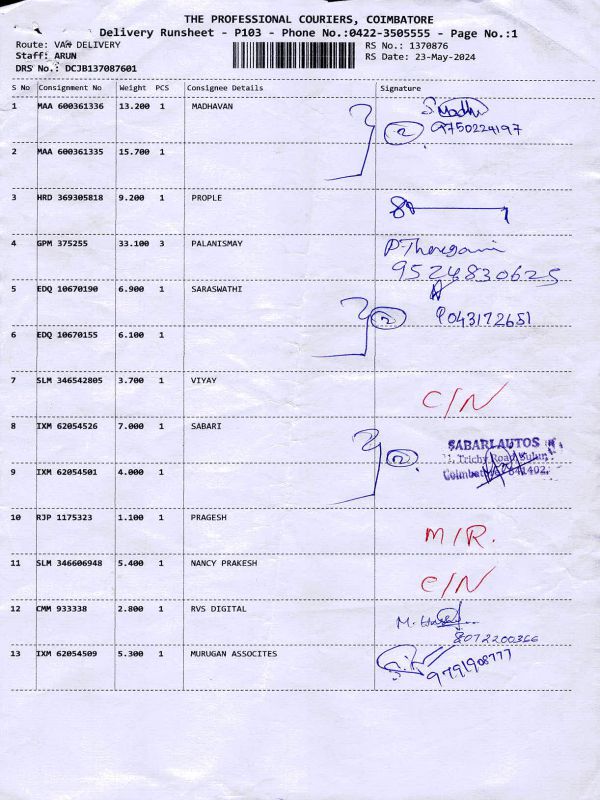 THE PROFESSIONAL COURIERS, COIMBATORE
Delivery Runsheet - P103 - Phone No.:0422-3505555 - Page No.:1
Route: VAN DELIVERY RS No.: 1370876
Staff: ARUN RS Date: 23-May-2024
DRS No.: DCJB137087601
S No Consignment No Weight PCS Consignee Details Signature
1 MAA 600361336 13.200 1 MADHAVAN
2 9750224197
2 MAA 600361335 15.700 1
3 HRD 369305818 9.200 1 PROPLE
4 GPM 375255 33.100 3 PALANISMAY
9524830625
5 EDQ 10670190 6.900 1 SARASWATHI
2 9043172651
6 EDQ 10670155 6.100 1
7 SLM 346542805 3.700 1 VIYAY C/N
8 IXM 62054526 7.000 1 SABARI
SABARI AUTOS
2 Trichy Road, Sulur
9 IXM 62054501 4.000 1
10 RJP 1175323 1.100 1 PRAGESH M/R.
11 SLM 346606948 5.400 1 NANCY PRAKESH C/N
12 CMM 933338 2.800 1 RVS DIGITAL
8072200366
13 IXM 62054509 5.300 1 MURUGAN ASSOCITES
9791908777